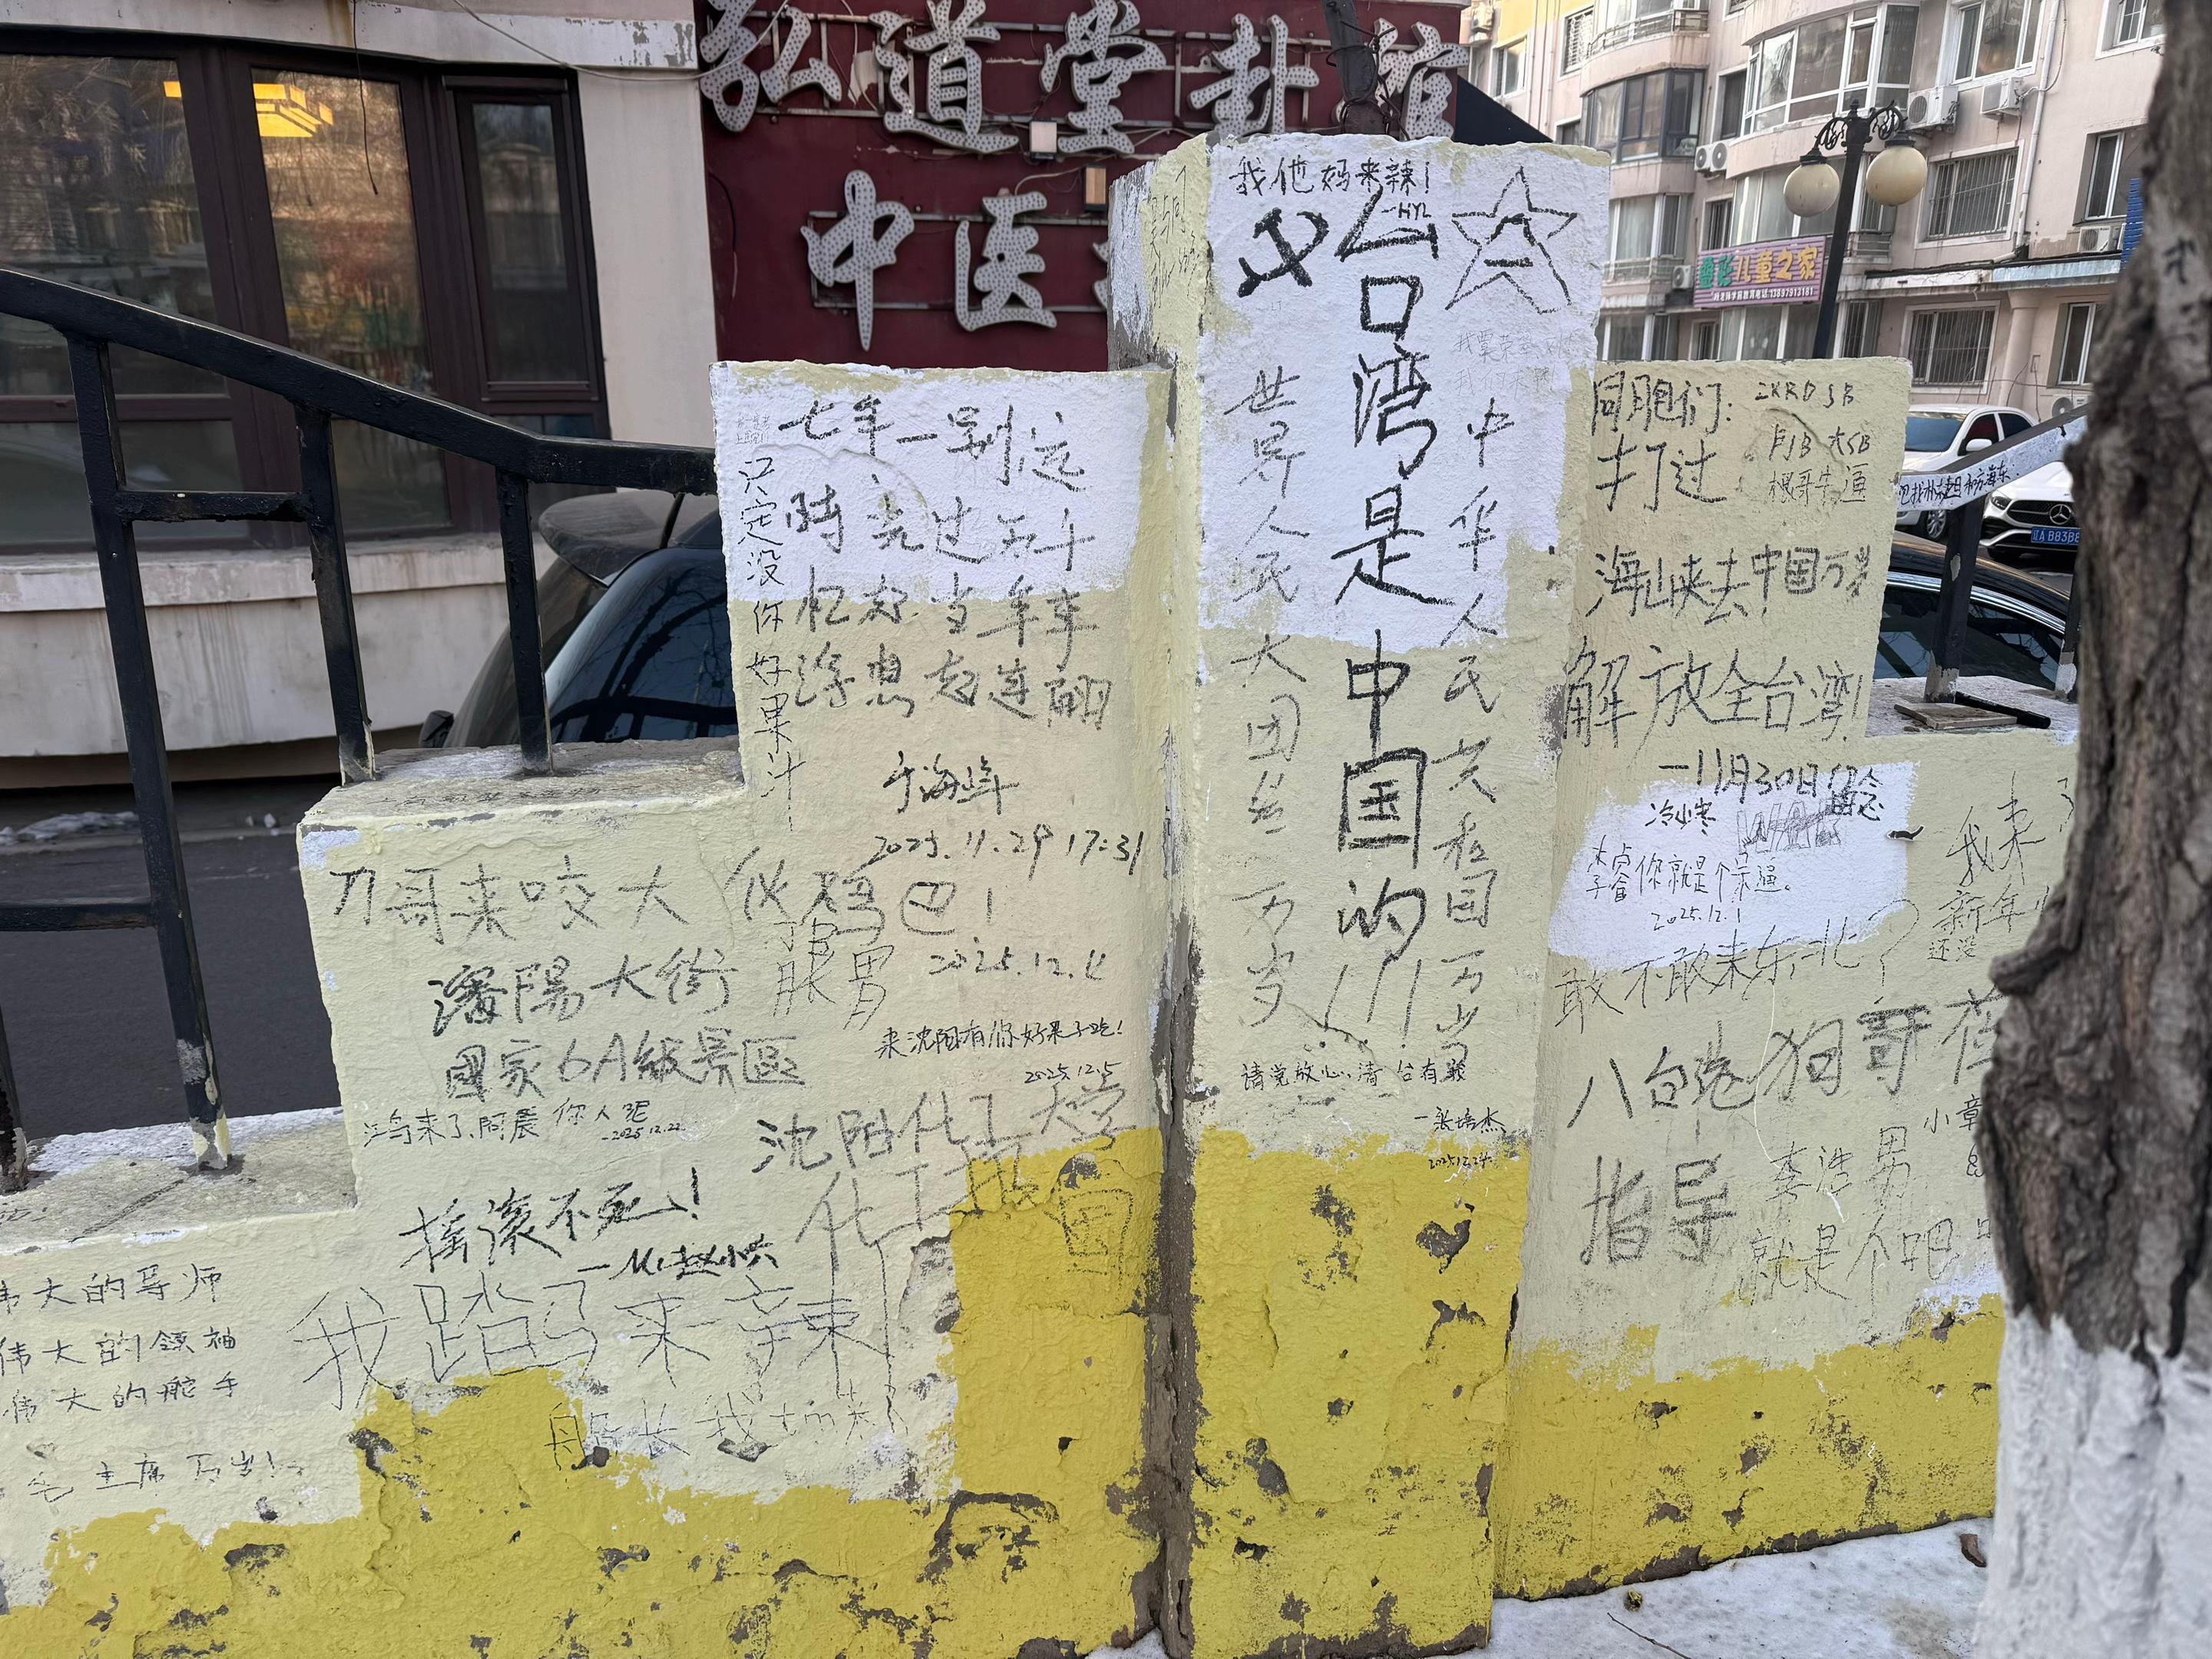 弘道堂卦馆
中医
儿童之家
13897913181
辽A B83B8
七年一别
时光过
忆 当年
想起连翩
决定没你好果汁
于海峰
2025.11.29 17:31
刀哥来咬大
2025.12.4
瀋陽大街
國家6A級景區
胀胃
来沈阳有你好果子吃!
2025.12.5
鸿来了,阿晨你人呢
-2025.12.22
沈阳化工大学
化工
摇滚不死!
我踏马来辣
船长我tm来
伟大的导师
伟大的领袖
伟大的舵手
毛主席万岁!
我他妈来辣!
-HYL
台湾是中国的!!!
世界人民大团结万岁
中华人民共和国万岁
请党放心,清台有我
-张培杰
2025.12.24.
同胞们:
打过
海峡去!
中国万岁
解放全台湾!
-11月30日留念
ZKRDSB
大SB
根哥牛逼
冷少寒
WAR
李睿你就是个宗逼。
2025.12.1
敢不敢来东北?
八百晓狗哥在
指导
李浩男
就是个吧
小章
我来了
新年
还没